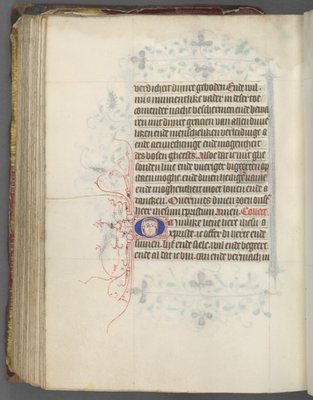 verdienen dinre geboden. Ende wil
mi o minnentlike vader in deser toe
comender nacht beschermen ende bewa
ren mit dinre gracien van allen duve
liken ende menscheliken verleidinge
ende anvechtinge ende mogentheit
des bosen gheests. Also dat ic mit ghe
sonden live ende vueriger begeerten op
staen moghe. ende dinen heilige name
ende moghentheit moet loven ende
dancken. Overmits dinen soen onsen
here ihesum xpristum. Amen.
lieve here ihesu
xpriste ic offer di heere ende
binnen. lijf ende siele. wil ende begeert
ende al dat ic bin. can ende vermach in